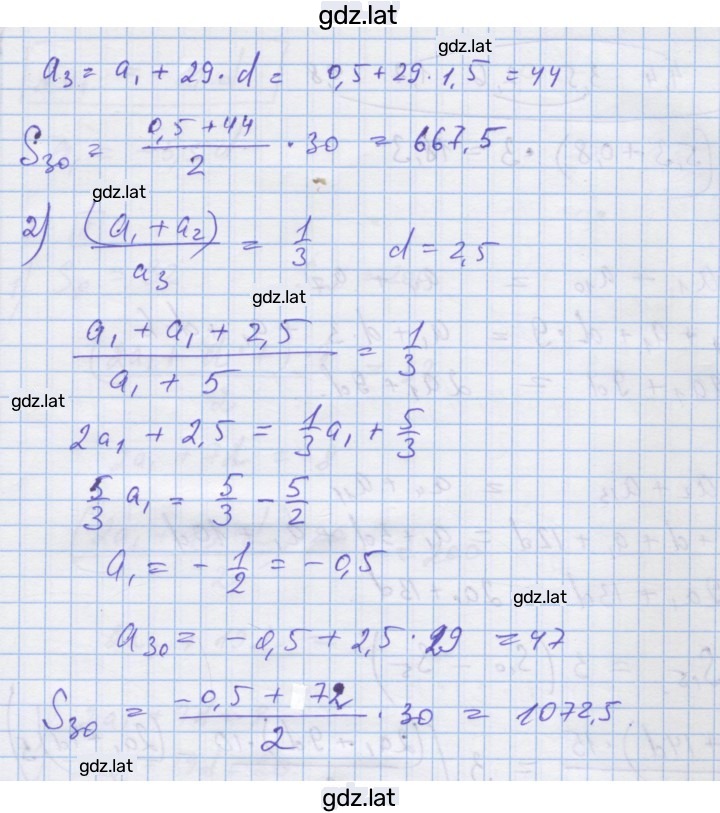 gdz.lat
gdz.lat
a₃ = a₁ + 29 · d = 0,5 + 29 · 1,5 = 44
S₃₀ = (0,5 + 44)/2 · 30 = 667,5
gdz.lat
2) (a₁ + a₂)/a₃ = 1/3 d = 2,5
gdz.lat
(a₁ + a₁ + 2,5)/(a₁ + 5) = 1/3
gdz.lat
2a₁ + 2,5 = 1/3 a₁ + 5/3
5/3 a₁ = 5/3 - 5/2
a₁ = - 1/2 = - 0,5
gdz.lat
a₃₀ = - 0,5 + 2,5 · 29 = 47
S₃₀ = (-0,5 + 72)/2 · 30 = 1072,5.
gdz.lat
gdz.lat